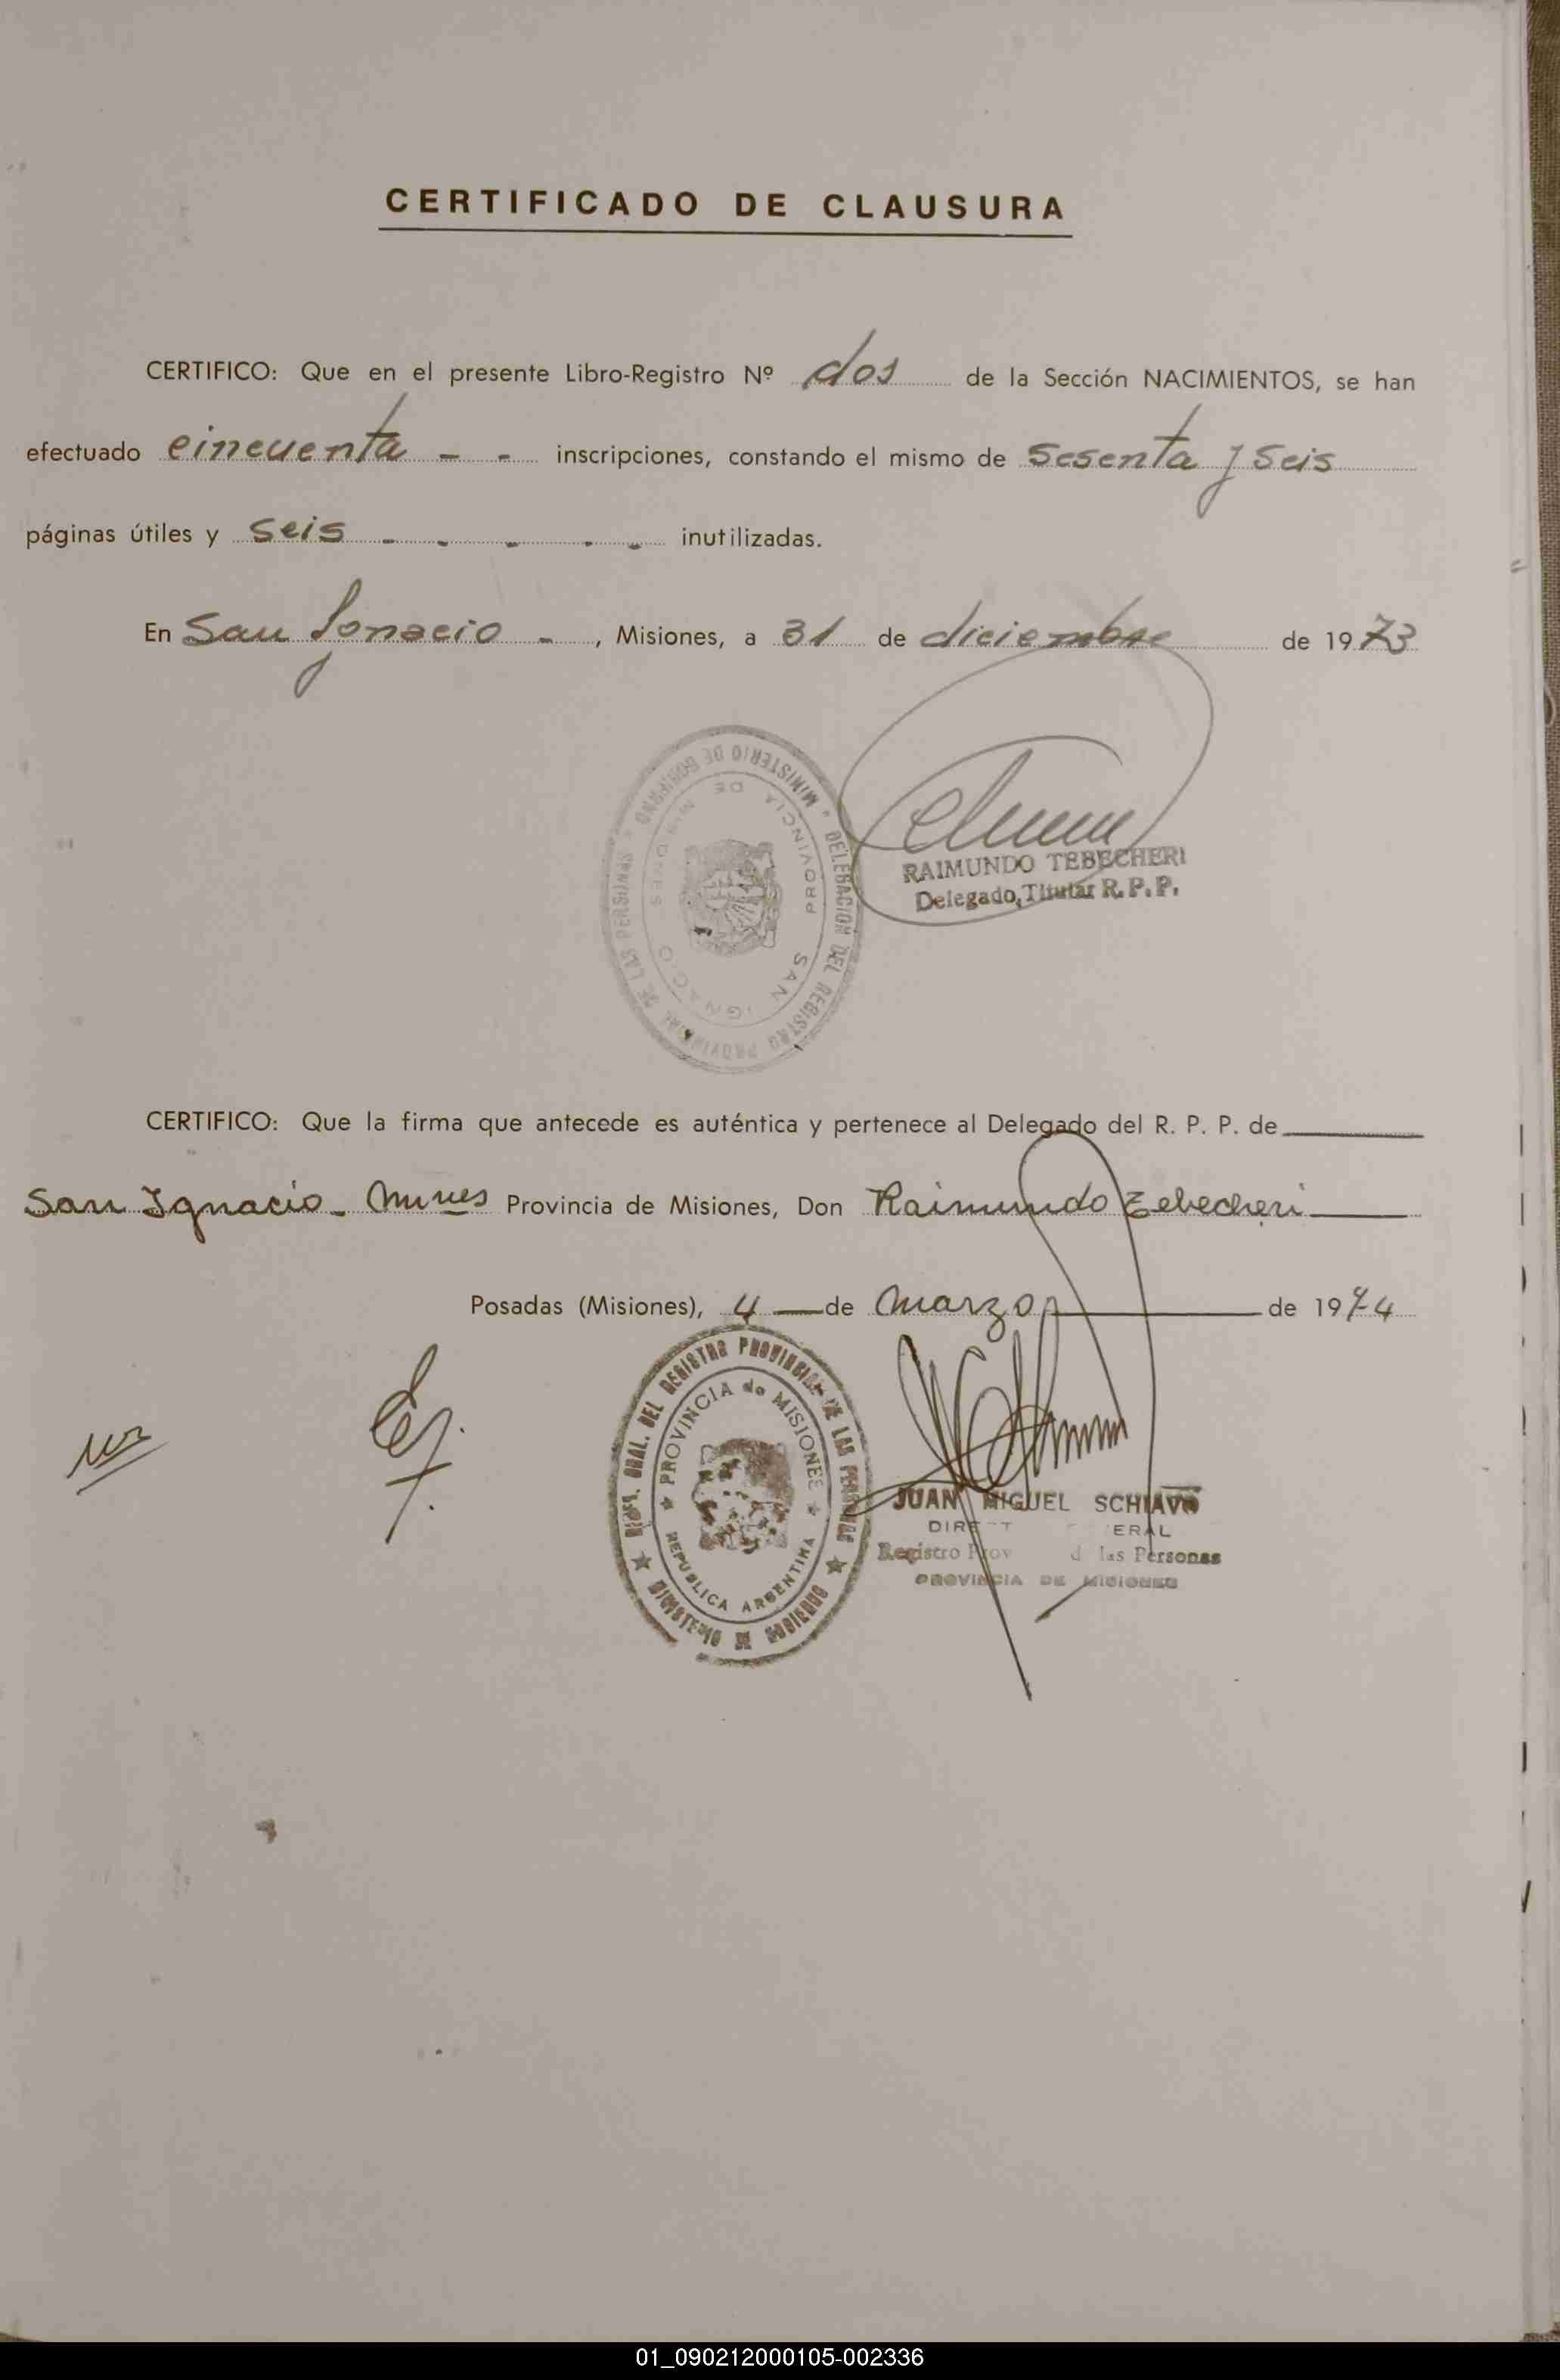 CERTIFICADO DE CLAUSURA
CERTIFICO: Que en el presente Libro-Registro Nº dos de la Sección NACIMIENTOS, se han
efectuado cincuenta - - inscripciones, constando el mismo de sesenta y seis
páginas útiles y seis - - - - - inutilizadas.
En San Ignacio - , Misiones, a 31 de diciembre de 1973
MINISTERIO DE GOBIERNO
DELEGACION DEL REGISTRO PROVINCIAL DE LAS PERSONAS
PROVINCIA DE MISIONES
SAN IGNACIO
RAIMUNDO TEBECHERI
Delegado Titular R. P. P.
CERTIFICO: Que la firma que antecede es auténtica y pertenece al Delegado del R. P. P. de
San Ignacio - Provincia de Misiones, Don Raimundo Tebecheri
Posadas (Misiones), 4 de marzo de 1974
DIREC. GRAL. DEL REGISTRO PROVINCIAL DE LAS PERSONAS
PROVINCIA de MISIONES
REPUBLICA ARGENTINA
MINISTERIO DE GOBIERNO
JUAN MIGUEL SCHIAVO
DIRECT ERAL
Registro Prov d las Personas
PROVINCIA DE MISIONES
01_090212000105-002336